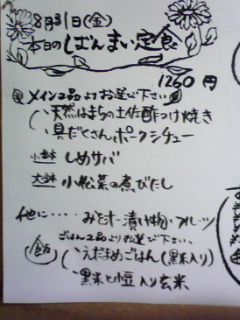 8月31日(金)
本日のしばんまい定食
1260円
メイン2品よりお選び下さい
天然はまちの土佐酢つけ焼き
具だくさんポークシチュー
小鉢 しめサバ
大鉢 小松菜の煮びたし
他に・・・・みそ汁・漬け物・フルーツ
ごはん2品よりお選び下さい。
えだまめごはん(黒米入り)
黒米と小豆入り玄米